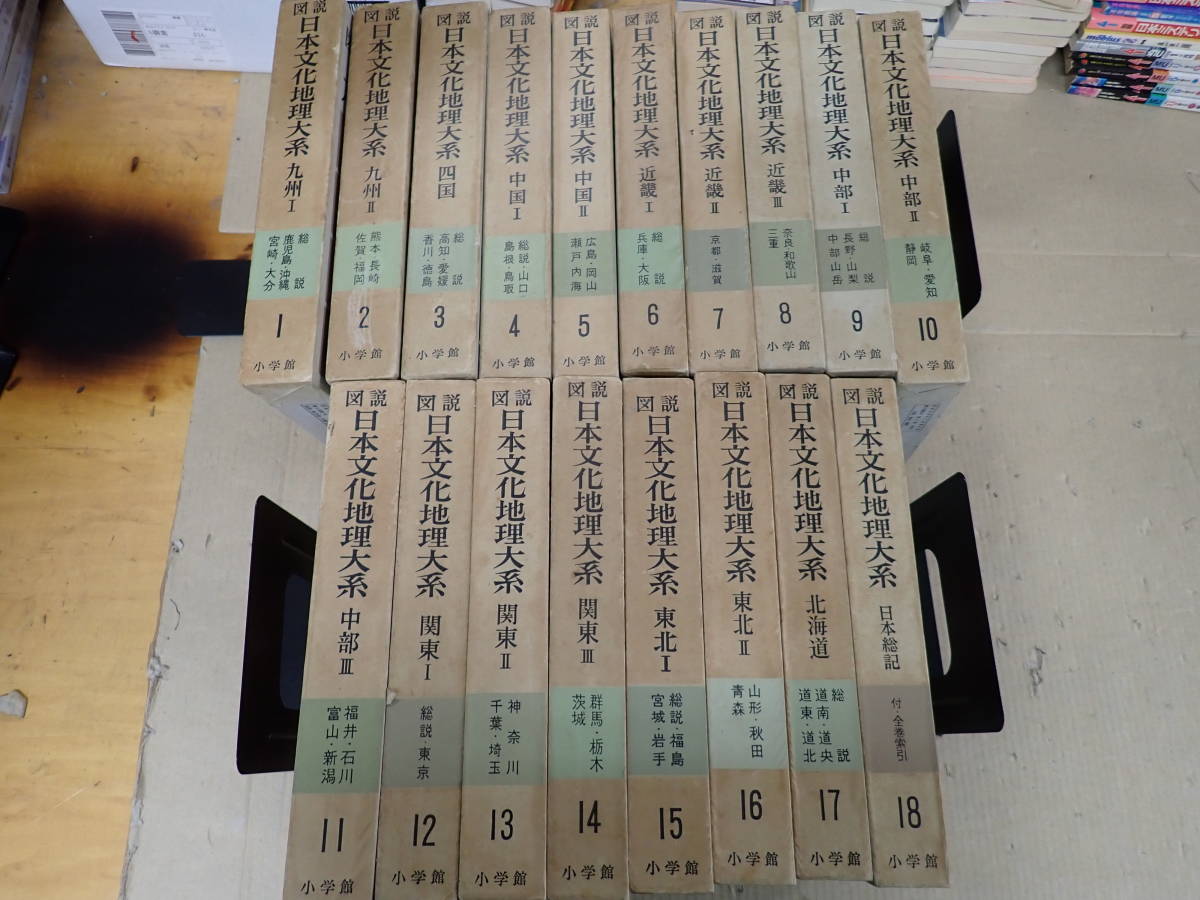 図説 日本文化地理大系 九州 I
総説
鹿児島・沖縄
宮崎・大分
1
小学館
図説 日本文化地理大系 九州 II
熊本 長崎
佐賀 福岡
2
小学館
図説 日本文化地理大系 四国
総説
高知・愛媛
香川・徳島
3
小学館
図説 日本文化地理大系 中国 I
総説・山口・
島根・鳥取
4
小学館
図説 日本文化地理大系 中国 II
広島・岡山
瀬戸内海
5
小学館
図説 日本文化地理大系 近畿 I
総説
兵庫・大阪
6
小学館
図説 日本文化地理大系 近畿 II
京都・滋賀
7
小学館
図説 日本文化地理大系 近畿 III
奈良 和歌山
三重
8
小学館
図説 日本文化地理大系 中部 I
総説
長野・山梨
中部山岳
9
小学館
図説 日本文化地理大系 中部 II
岐阜・愛知
静岡
10
小学館
図説 日本文化地理大系 中部 III
福井・石川
富山・新潟
11
小学館
図説 日本文化地理大系 関東 I
総説・東京
12
小学館
図説 日本文化地理大系 関東 II
神奈川
千葉・埼玉
13
小学館
図説 日本文化地理大系 関東 III
群馬・栃木
茨城
14
小学館
図説 日本文化地理大系 東北 I
総説・福島
宮城・岩手
15
小学館
図説 日本文化地理大系 東北 II
山形・秋田
青森
16
小学館
図説 日本文化地理大系 北海道
総説
道南・道央
道東・道北
17
小学館
図説 日本文化地理大系 日本総記
付・全巻索引
18
小学館